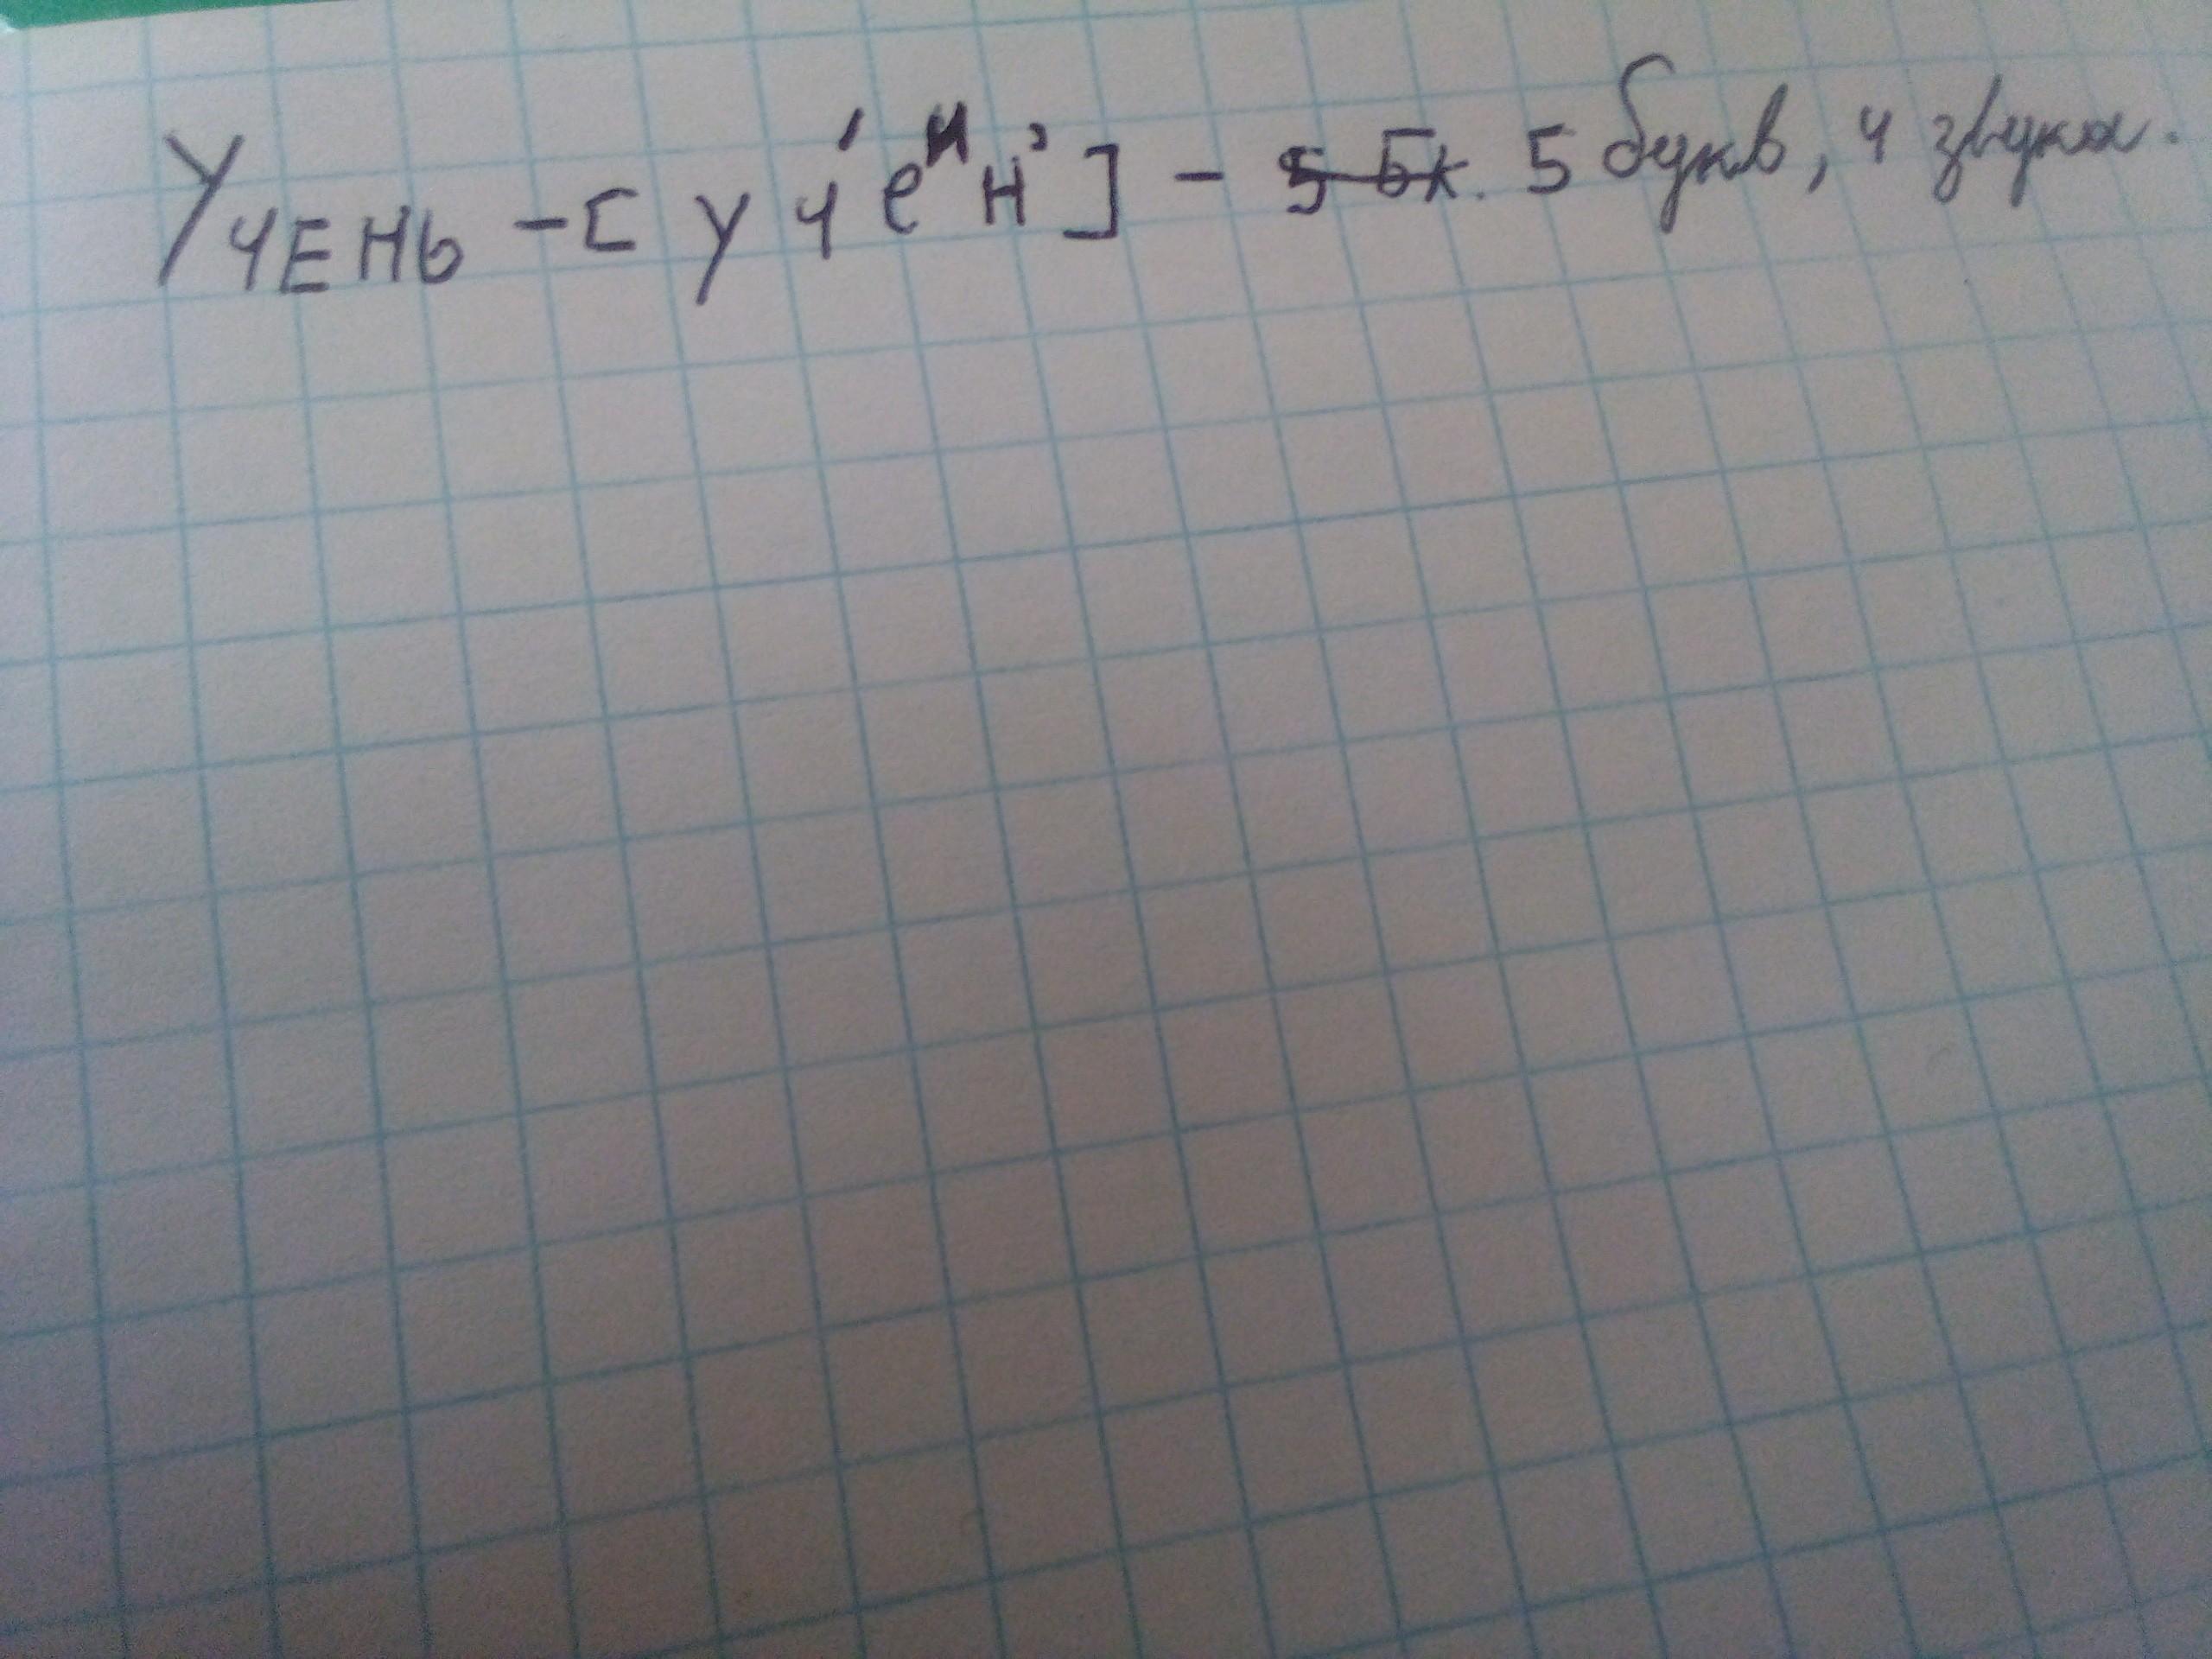 Учень - [ у ч' еᴻ н' ] - 5 бк. 5 букв, 4 звука.